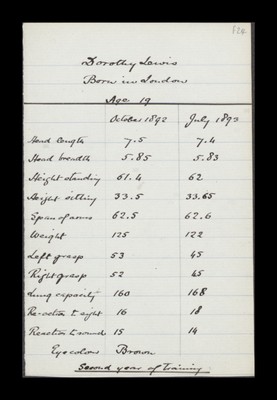 624
Dorothy Lewis
Born in London
Age 19
October 1892 July 1893
Head length 7.5 7.4
Head breadth 5.85 5.83
Height standing 61.4 62
Height sitting 33.5 33.65
Span of arms 62.5 62.6
Weight 125 122
Left grasp 53 45
Right grasp 52 45
Lung capacity 160 168
Re-action to sight 16 18
Reaction to sound 15 14
Eye colour Brown
Second year of training